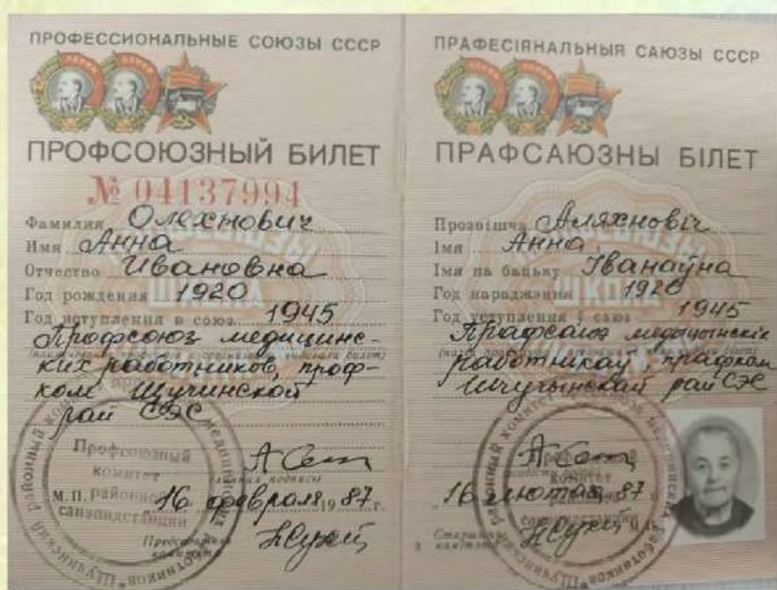 ПРОФЕССИОНАЛЬНЫЕ СОЮЗЫ СССР
ПРОФСОЮЗНЫЙ БИЛЕТ
№ 04137994
Фамилия Олехнович
Имя Анна
Отчество Ивановна
Год рождения 1920
Год вступления в союз 1945
Профсоюз медицинс-
ких работников, проф-
ком Щучинской
рай СЭС
Профсоюзный
комитет
районной
санэпидстанции
М.П. 16 февраля 1987 г.
ПРАФЕСІЯНАЛЬНЫЯ САЮЗЫ СССР
ПРАФСАЮЗНЫ БІЛЕТ
Прозвішча Аляхновіч
Імя Анна
Імя па бацьку Іванаўна
Год нараджэння 1920
Год уступлення ў саюз 1945
Прафсаюз медацынскіх
работнікаў, прафком
Шчучынскай рай СЭС
16 лютага 87